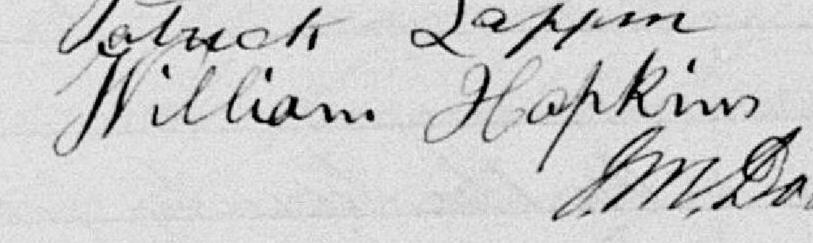 Patrick Lappin
William Hopkins
J. M. Do